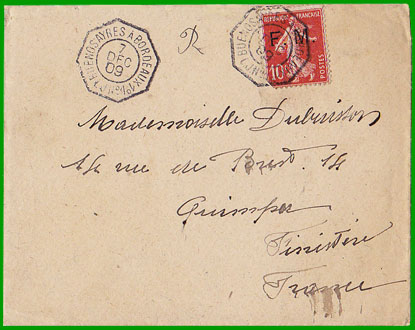 BUENOS-AYRES A BORDEAUX
7
DEC
09
R
RÉPUBLIQUE FRANÇAISE
F M
10
POSTES
Mademoiselle Dubuisson
14 rue de Brest. 14
Quimper
Finistère
France